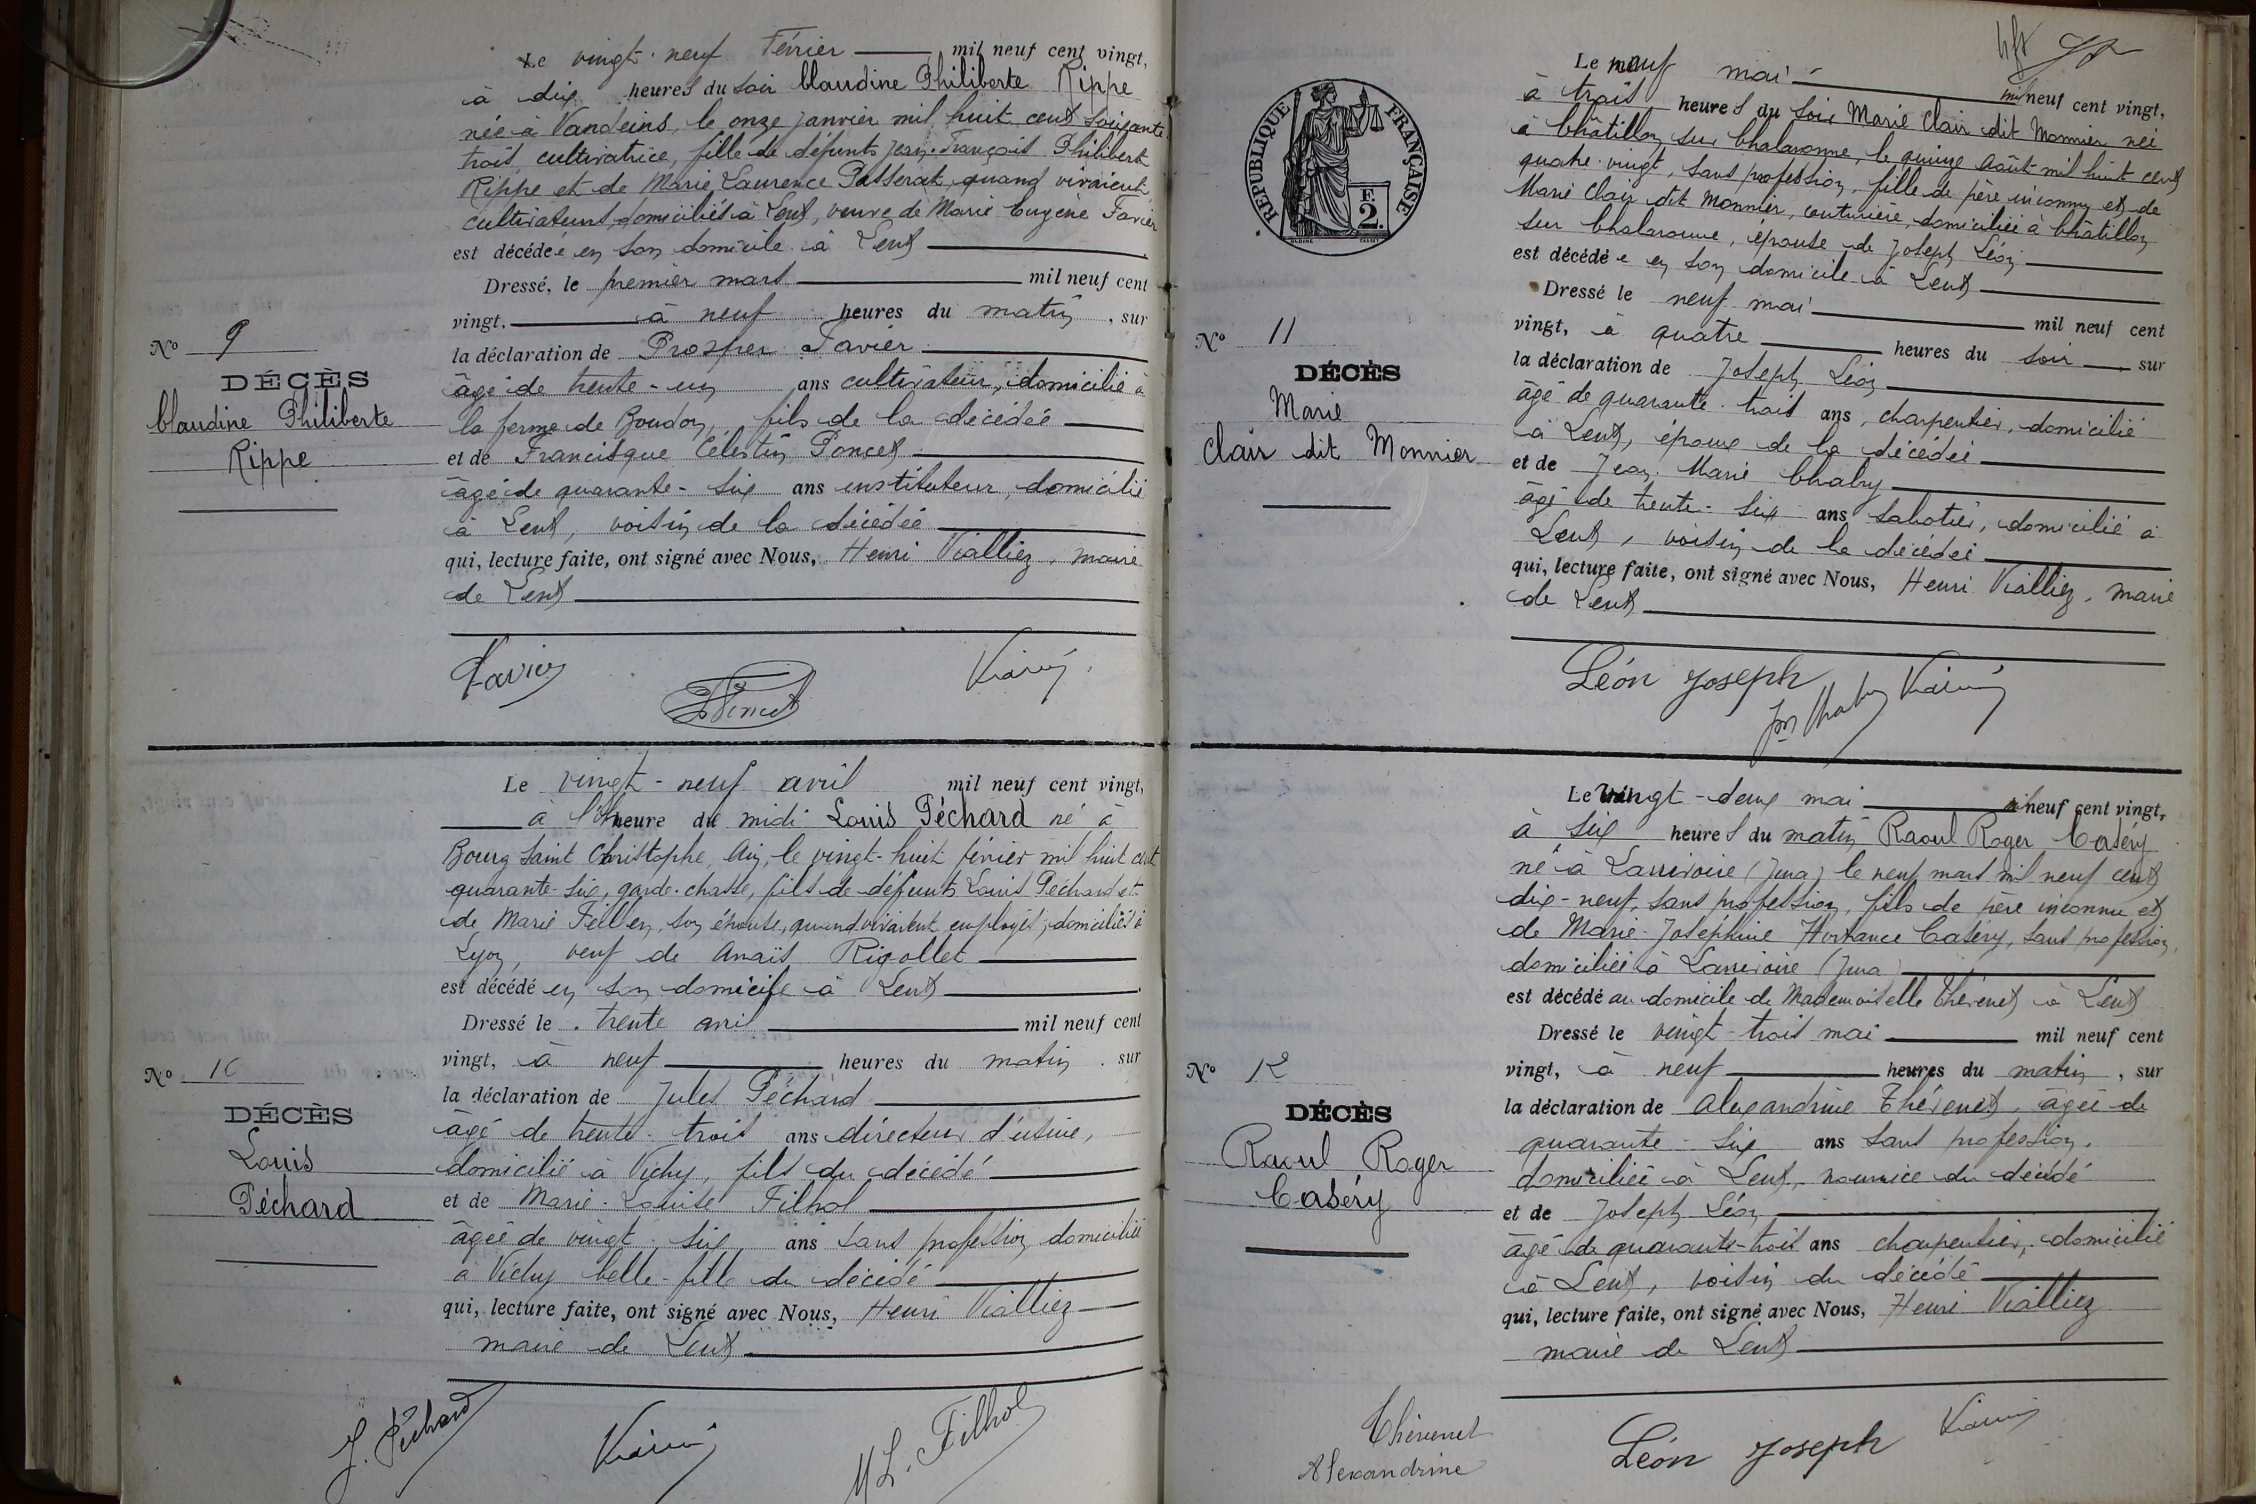 Le vingt-neuf Février mil neuf cent vingt,
à dix heures du soir Claudine Philiberte Rippe
née à Vandeins, le onze janvier mil huit cent soixante
trois, cultivatrice, fille de défunts Jean-François Philibert
Rippe et de Marie Laurence Passerat, quand vivaient,
cultivateurs, domiciliés à Lent, veuve de Marie Eugène Favier
est décédée en son domicile à Lent
Dressé, le premier mars mil neuf cent
vingt, à neuf heures du matin, sur
la déclaration de Prosper Favier
âgé de trente-un ans cultivateur, domicilié à
la ferme de Boudon, fils de la décédée
et de Francisque Célestin Poncet
âgé de quarante-six ans instituteur, domicilié
à Lent, voisin de la décédée
qui, lecture faite, ont signé avec Nous, Henri Vialliez, maire
de Lent
No 9
DÉCÈS
Claudine Philiberte
Rippe
Favier
Le vingt-neuf avril mil neuf cent vingt,
à l'heure du midi Louis Péchard né à
Bourg Saint Christophe, Ain, le vingt-huit février mil huit cent
quarante-six, garde-chasse, fils de défunts Louis Péchard et
de Marie son épouse, quand vivaient, employés, domiciliés à
Lyon, veuf de Anaïs Rigollet
est décédé en son domicile à Lent
Dressé le trente avril mil neuf cent
vingt, à neuf heures du matin, sur
la déclaration de Jules Péchard
âgé de trente-trois ans directeur d'usine,
domicilié à Vichy, fils du décédé
et de Marie-Louise Filhol
âgée de vingt-six ans sans profession, domiciliée
à Vichy belle-fille du décédé
qui, lecture faite, ont signé avec Nous, Henri Vialliez
maire de Lent
No 10
DÉCÈS
Louis
Péchard
J. Péchard
M L. Filhol
RÉPUBLIQUE FRANÇAISE
F.
2.
Le neuf mai mil neuf cent vingt,
à trois heures du soir Marie Clair dit Monnier née
à Châtillon sur Chalaronne, le quinze août mil huit cent
quatre-vingt, sans profession, fille de père inconnu et de
Marie Clair dit Monnier, couturière, domiciliée à Châtillon
sur Chalaronne, épouse de Joseph Léon
est décédée en son domicile à Lent
Dressé le neuf mai mil neuf cent
vingt, à quatre heures du soir, sur
la déclaration de Joseph Léon
âgé de quarante-trois ans, charpentier, domicilié
à Lent, époux de la décédée
et de Jean-Marie Chabry
âgé de trente-six ans sabotier, domicilié à
Lent, voisin de la décédée
qui, lecture faite, ont signé avec Nous, Henri Vialliez, maire
de Lent
No 11
DÉCÈS
Marie
Clair dit Monnier
Léon Joseph
Le vingt-deux mai mil neuf cent vingt,
à six heures du matin Raoul Roger Caséry
né à Larrivoire (Jura) le neuf mars mil neuf cent
dix-neuf, sans profession, fils de père inconnu et
de Marie-Joséphine Hortance Caséry, sans profession,
domiciliée à Larrivoire (Jura)
est décédé au domicile de Mademoiselle Thévenet à Lent
Dressé le vingt-trois mai mil neuf cent
vingt, à neuf heures du matin, sur
la déclaration de Alexandrine Thévenet, âgée de
quarante-six ans sans profession,
domiciliée à Lent, nourrice du décédé
et de Joseph Léon
âgé de quarante-trois ans charpentier, domicilié
à Lent, voisin du décédé
qui, lecture faite, ont signé avec Nous, Henri Vialliez
maire de Lent
No 12
DÉCÈS
Raoul Roger
Caséry
Thévenet
Alexandrine
Léon Joseph